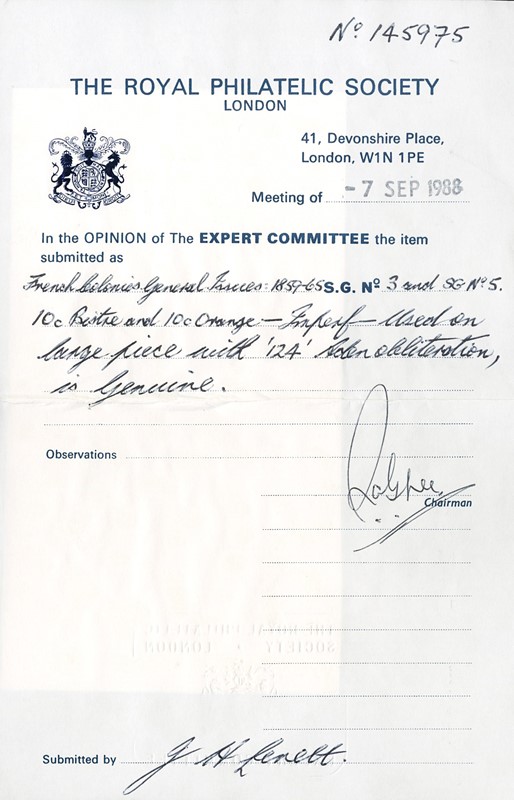 Nº 145975
THE ROYAL PHILATELIC SOCIETY
LONDON
41, Devonshire Place,
London, W1N 1PE
Meeting of - 7 SEP 1988
In the OPINION of The EXPERT COMMITTEE the item
submitted as
French Colonies General Issues: 1859-65 S.G. Nº 3 and SG Nº 5.
10c Bistre and 10c Orange — Imperf — Used on
large piece with '124' Aden obliteration,
is Genuine.
Observations
Chairman
THE ROYAL PHILATELIC
SOCIETY LONDON
Submitted by J H